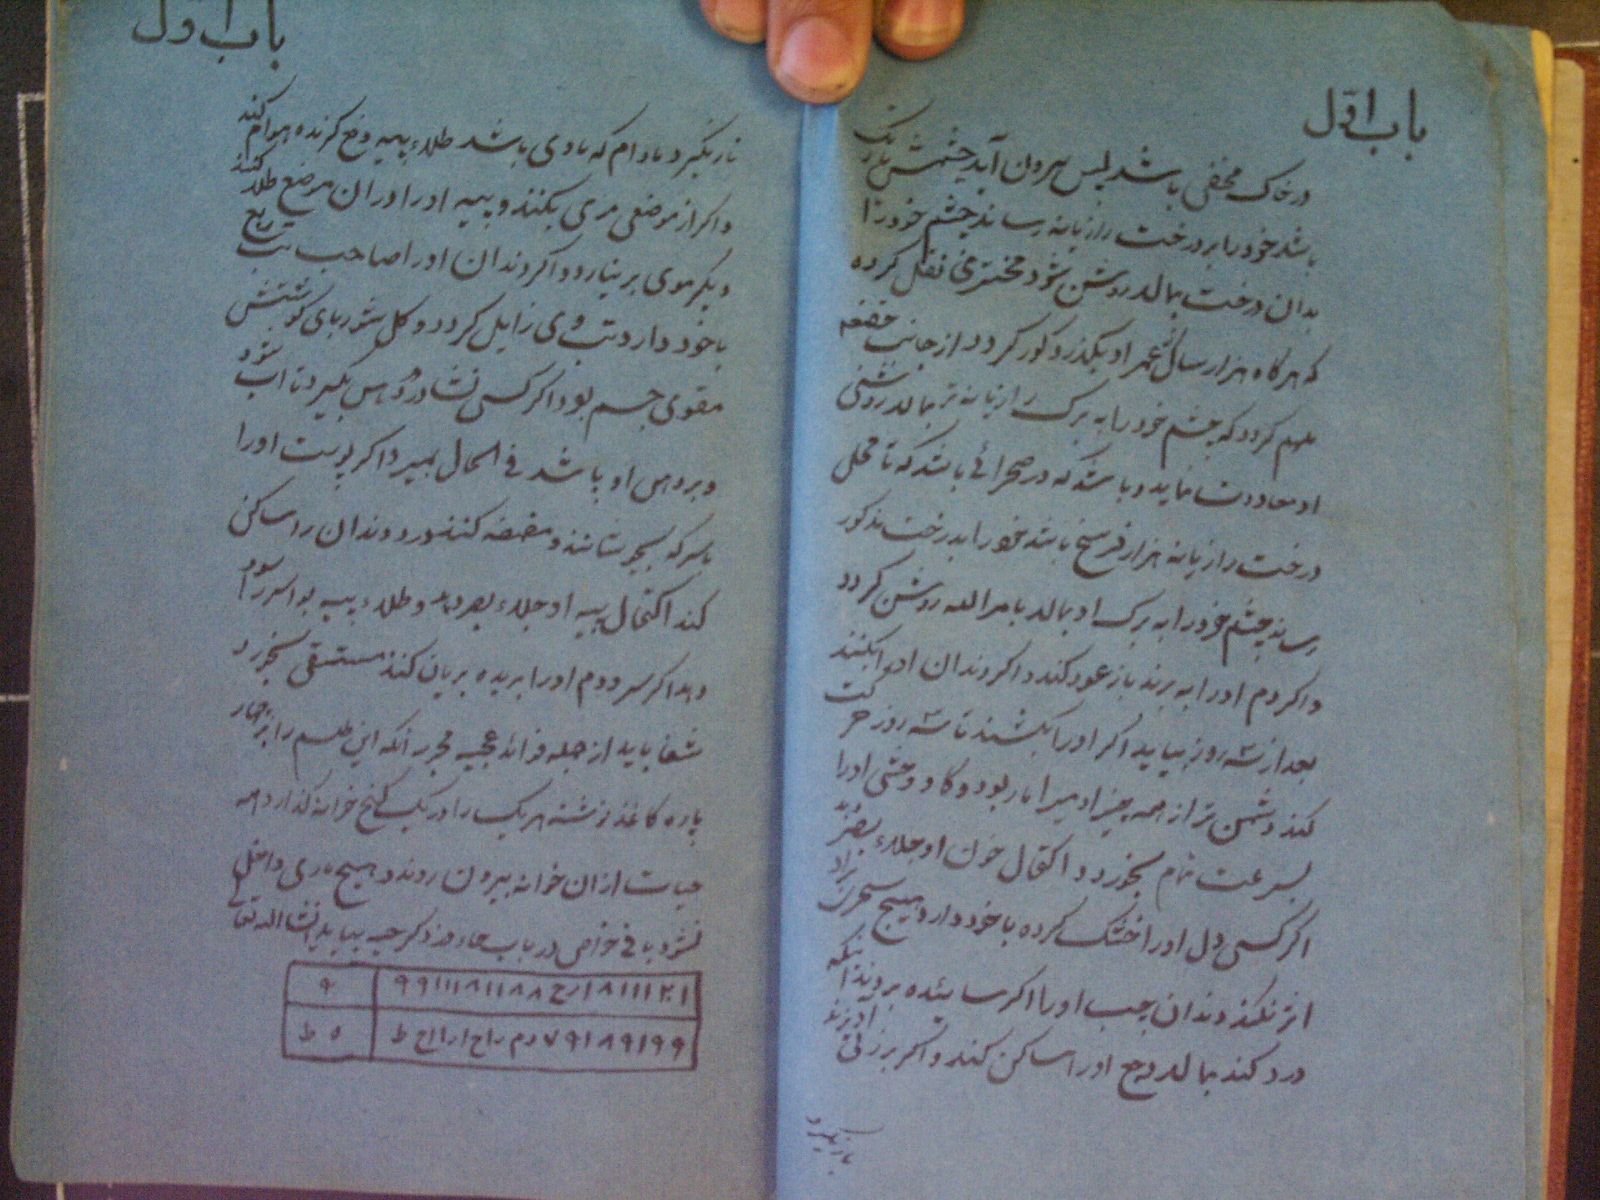 باب اول
در خاک مخفی باشد پس بیرون آید چشمش تاریک
باشد خود را بر درخت رازیانه رساند چشم خود را
بدان درخت بمالد روشن شود مخشری نقل کرده
که هرگاه هزار سال عمر او بگذرد کور گردد از جانب
ملهم گردد که چشم خود را به برک رازیانه تر بمالد روشنی
او معاودت نماید و باشد که در صحرائی باشد که تا محل
درخت رازیانه هزار فرسخ باشد خود را بدرخت مذکور
رساند چشم خود را به برک او بمالد بامر الله روشن گردد
و اکر دم او را به برند باز عود کند و اکر دندان او را بکنند
بعد از سه روز بیاید اکر او را بکشند تا سه روز حرکت
کند دشمن تر از همه چیز او میرا مار بود و گاو وحشی او را
بسرعت تمام بخورد و اکتحال خون او جلاء بصر
اکر کسی دل او را خشک کرده با خود دارد هیچ سحری
اثر نکند دندان چپ او را اکر ساینده بر دندانیکه
درد کند بمالد وجع او را ساکن کند و اکر بر زنی
باز نگیرد
باب اول
بار نگیرد مادام که با وی باشد طلاء پیه دفع گزنده هوام کند
و اکر از موضعی موی بکنند و پیه او را در ان موضع طلا کنند
دیگر موی بر نیارد و اکر دندان او را صاحب تب ربع
با خود دارد تب وی زایل گردد و اکل شوربای گوشتش
مقوی جسم بود اکر کسی نشادر در دهن بگیرد تا اب شود
و بر دهن او پاشد فی الحال بمیرد اکر پوست او را
با سرکه بجوشانند و مضمضه کنند درد دندان را ساکن
کند اکتحال پیه او جلاء بصر دهد و طلاء پیه بواسیر را سود
دهد اکر سر و دم او را بریده بریان کنند مستسقی بخورد
شفا یابد از جمله فوائد عجیبه مجربه انکه این طلسم را بر چهار
پاره کاغذ نوشته هر یک را در یک کنج خوانه گذارد همه
حیات از ان خوانه بیرون روند و هیچ ماری داخل
نشود باقی خواص در باب حاء در ذکر حیه بیاید انشاء الله تعالی